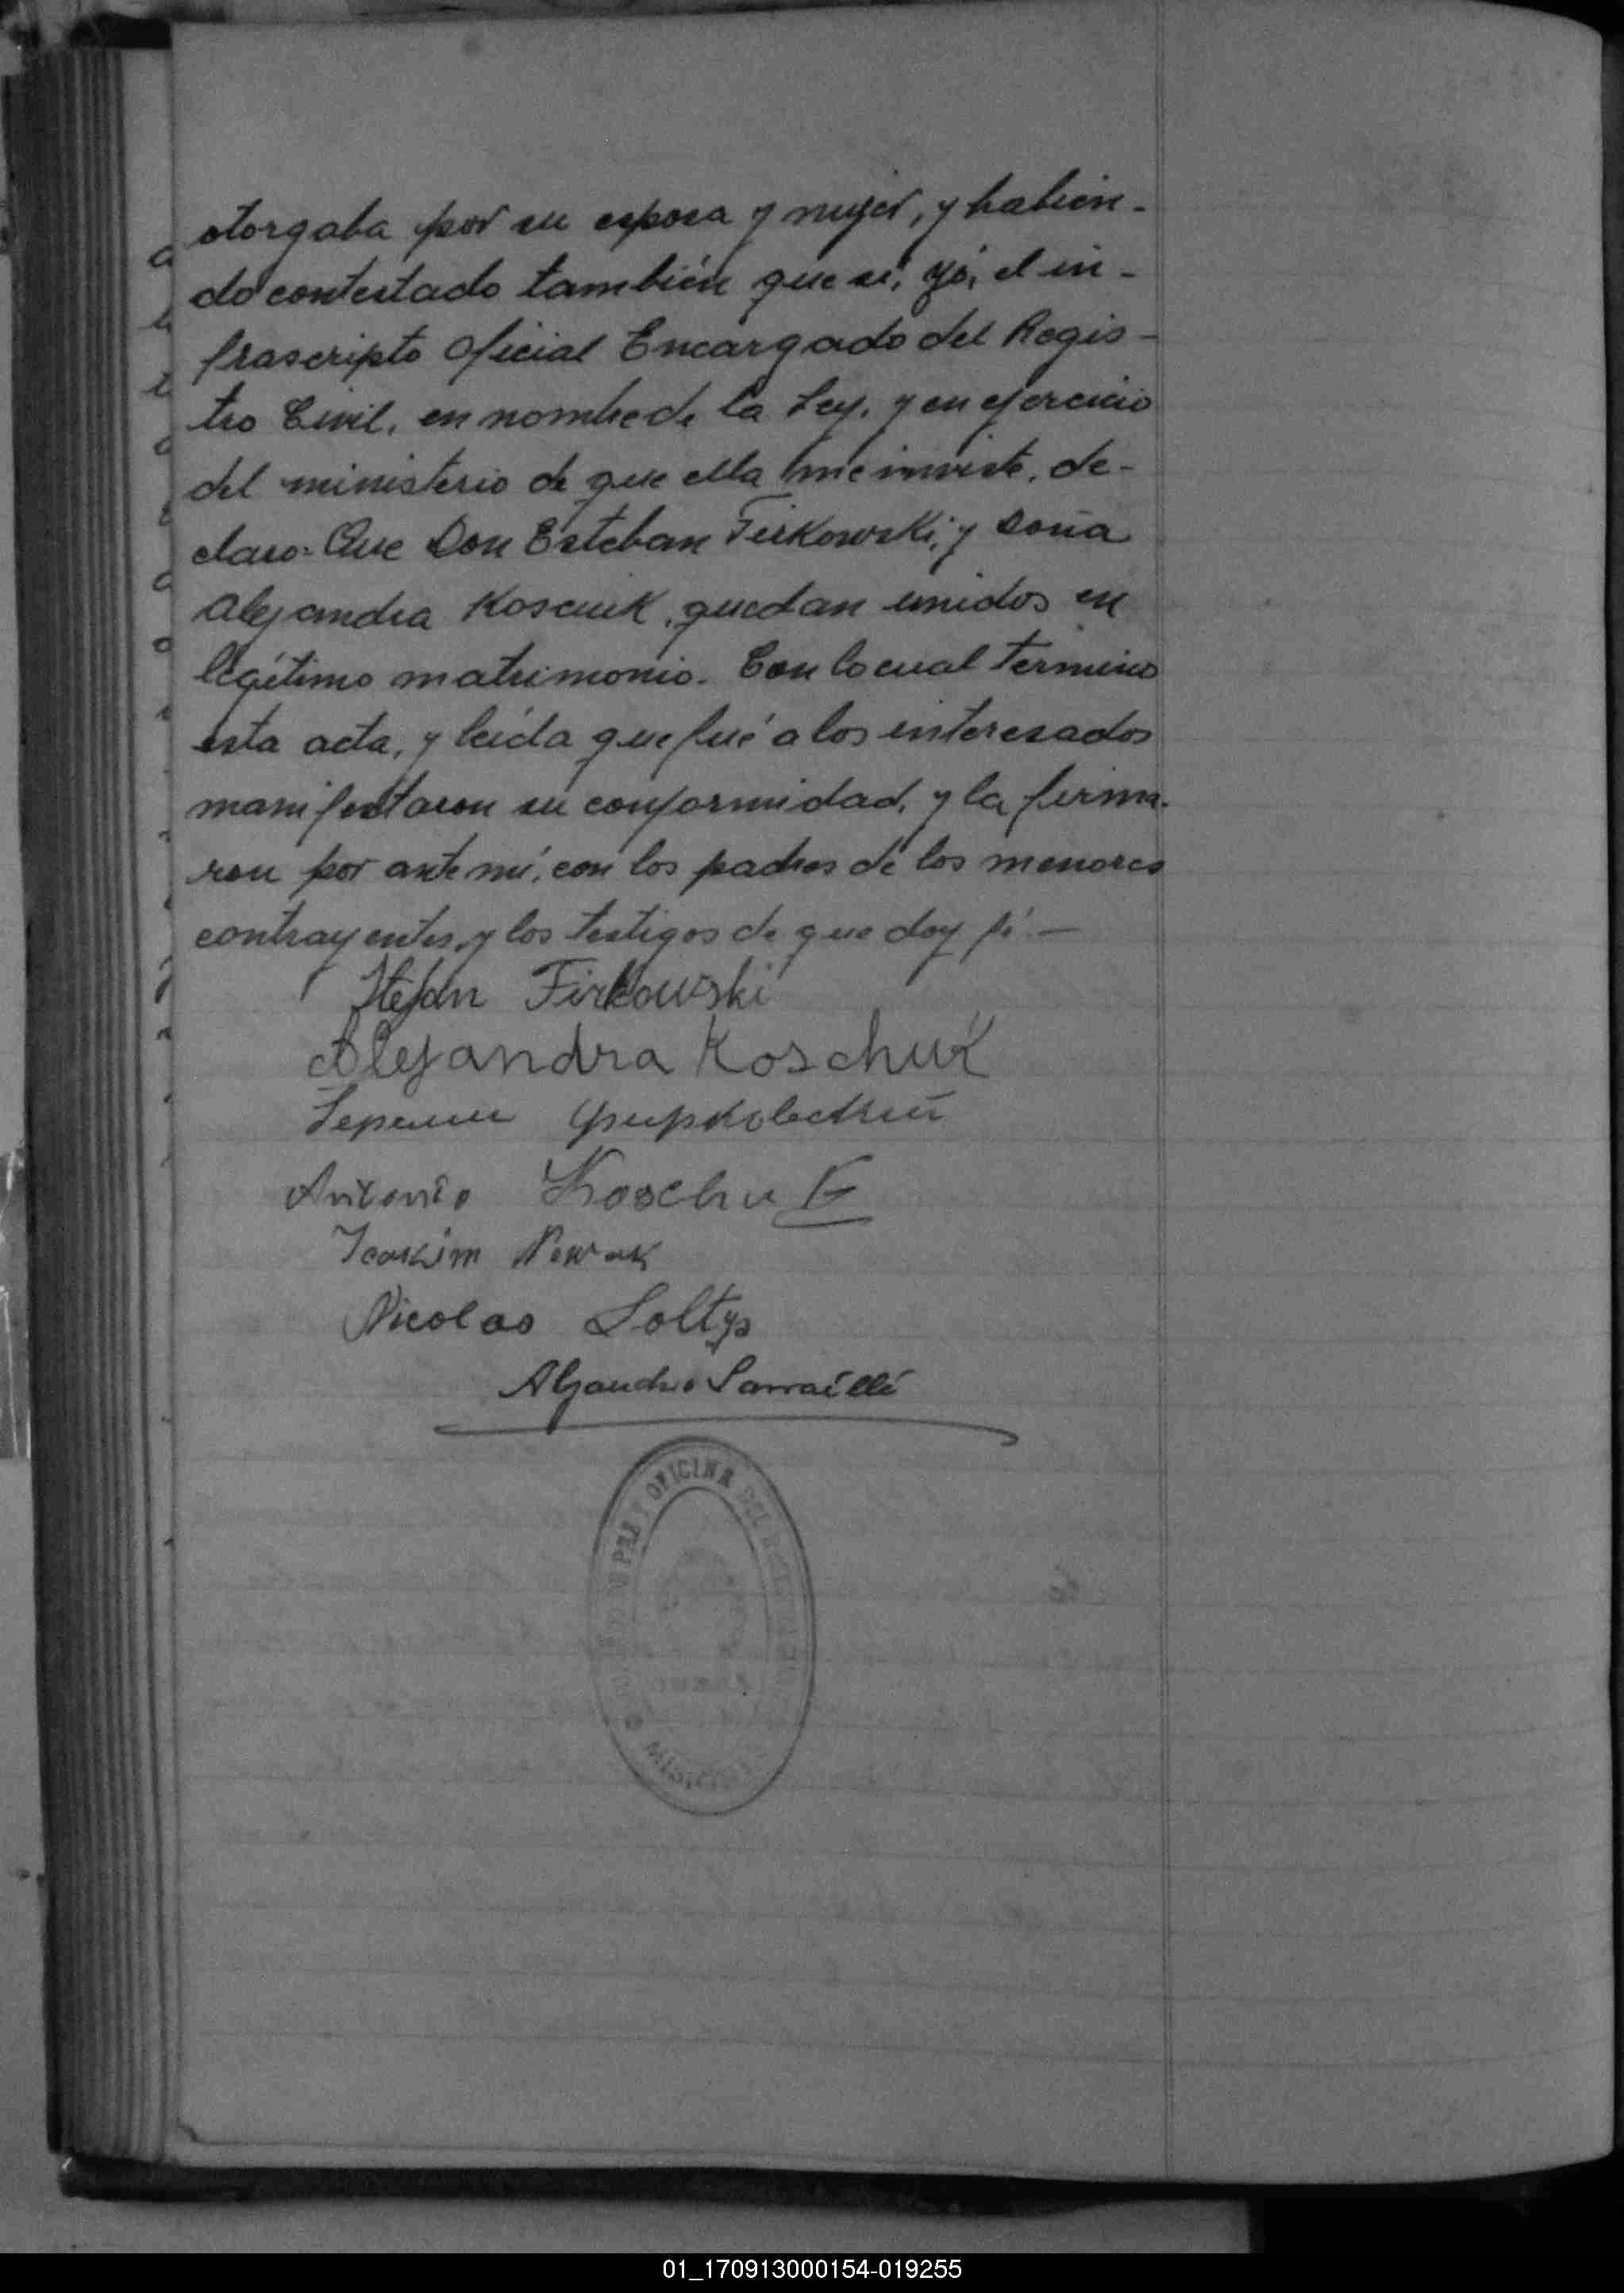 otorgaba por su esposa y mujer, y habien-
do contestado también que sí, yó, el in-
frascripto Oficial Encargado del Regis-
tro Civil, en nombre de la Ley, y en ejercicio
del ministerio de que ella me inviste, de-
claro: Que Don Esteban Firkowski, y Doña
Alejandra Kosciuk, quedan unidos en
legítimo matrimonio. Con lo cual terminó
esta acta, y leída que fué a los interesados
manifestaron su conformidad, y la firma-
ron por ante mí, con los padres de los menores
contrayentes, y los testigos de que doy fé.—
Stefan Firkowski
Alejandra Koschuk
Фирковский
Antonio Koschuk
Joakim Nowak
Nicolas Soltys
Alejandro Sarraillé
DE PAZ Y OFICINA DEL
MISIONES
01_170913000154-019255